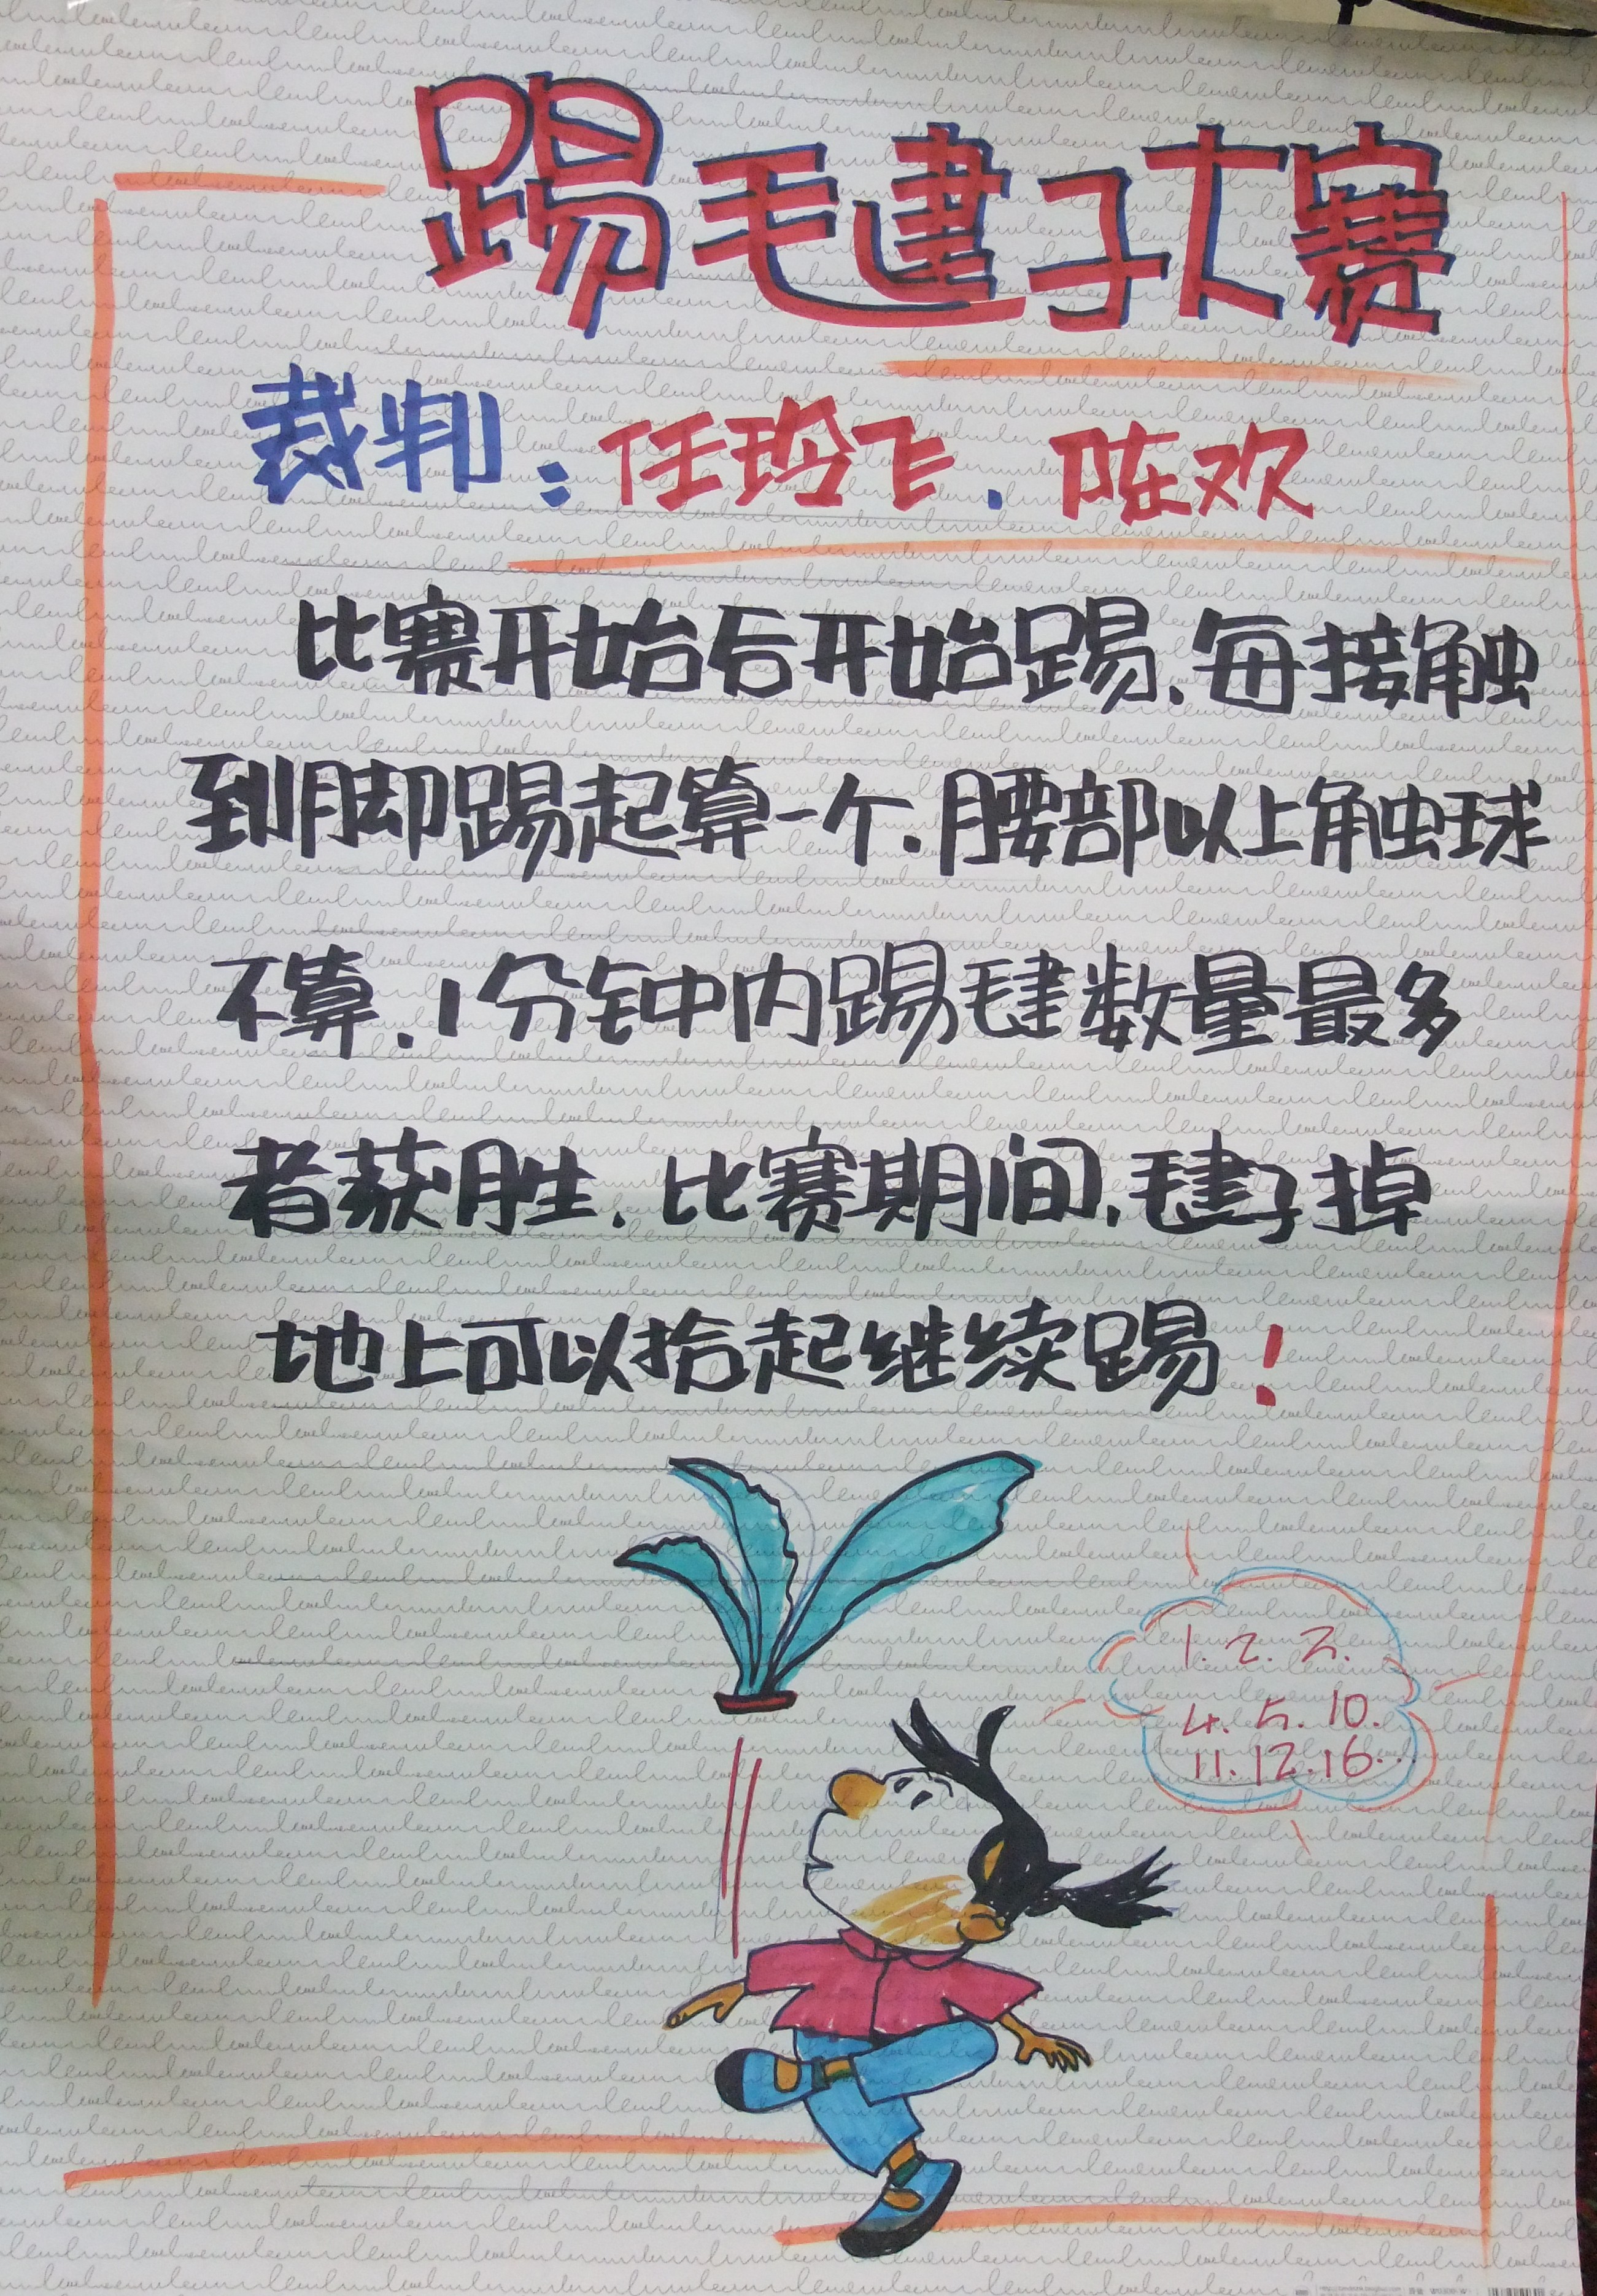 踢毽子大赛
裁判：任玲飞.陈欢
比赛开始后开始踢.每接触
到脚踢起算一个.腰部以上触球
不算.1分钟内踢毽数量最多
者获胜.比赛期间,毽子掉
地上可以拾起继续踢！
1.2.2.
4.5.10.
11.12.16...